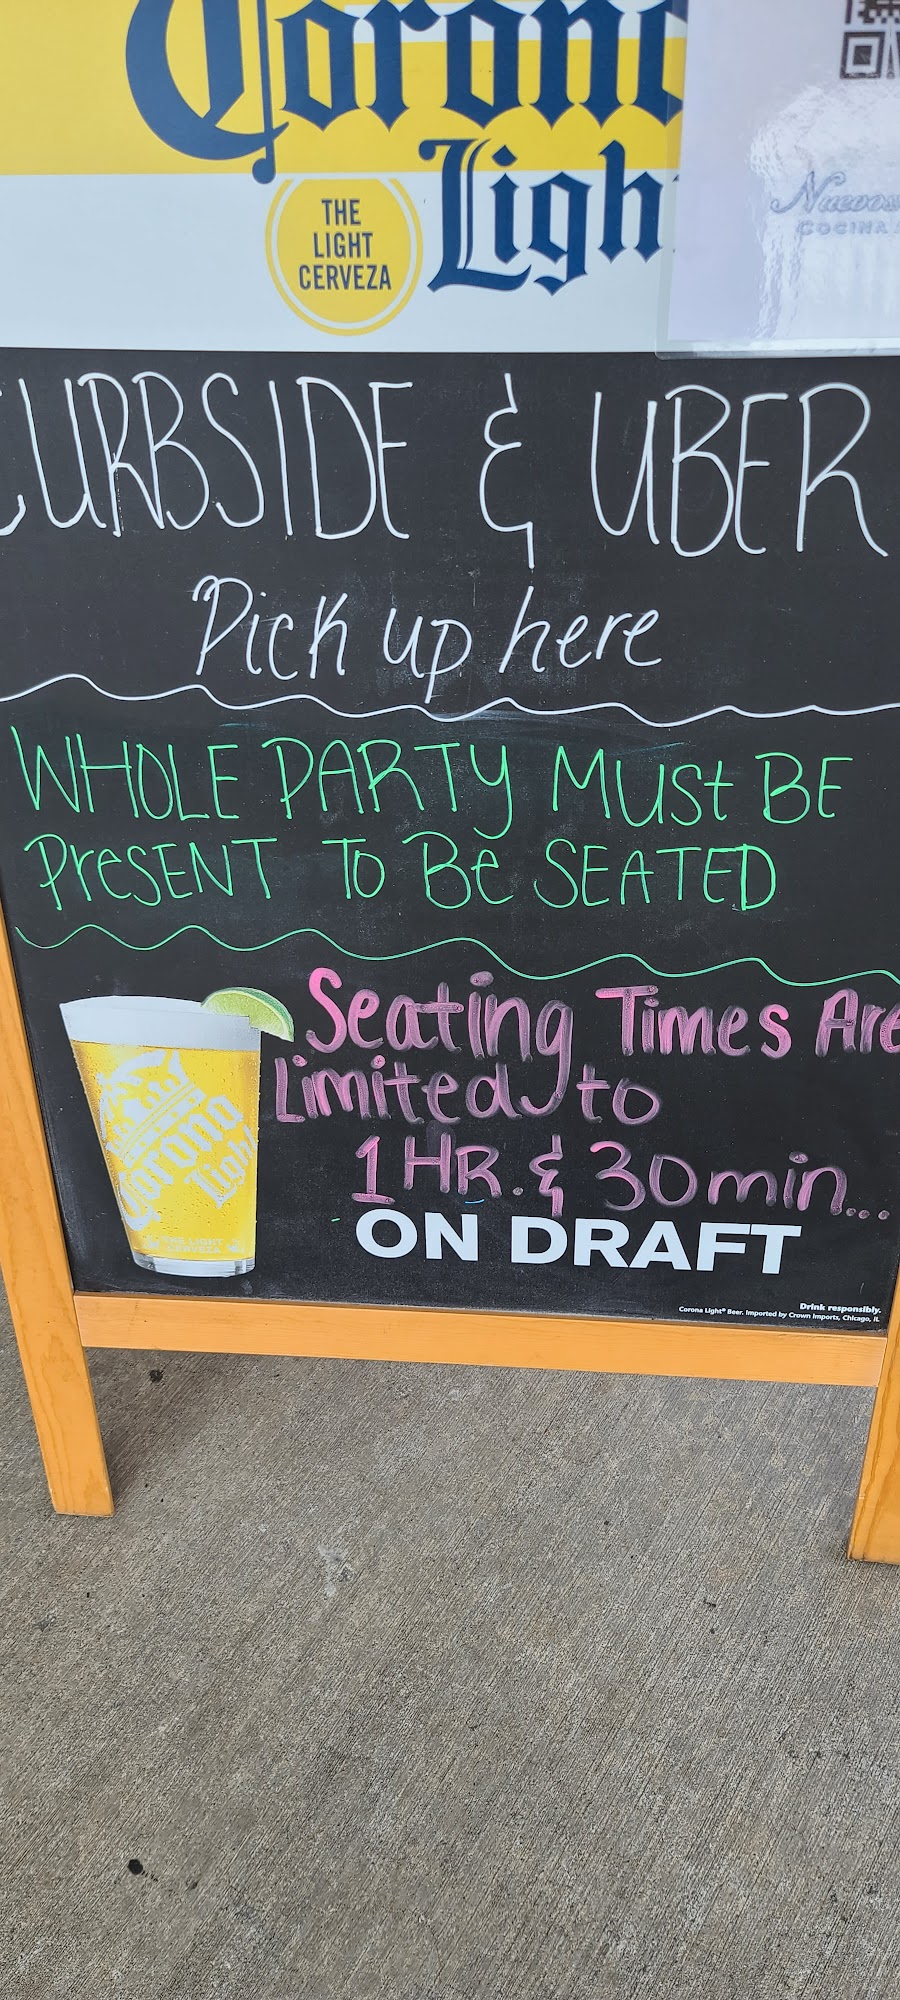 Corona
Light
THE
LIGHT
CERVEZA
Nuevos
COCINA
CURBSIDE & UBER
Pick up here
WHOLE PARTY MUSt BE
PreSENT To Be SEATED
Seating Times Are
Limited to
1 HR. & 30 min...
ON DRAFT
Corona
Light
THE LIGHT
CERVEZA
Drink responsibly.
Corona Light® Beer. Imported by Crown Imports, Chicago, IL